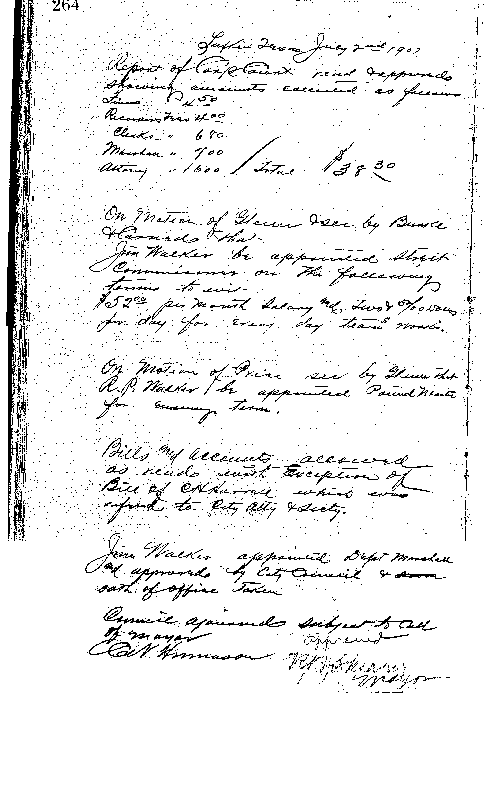 264
Lufkin Texas July 2nd 1907
Report of Corp Court read & approved
showing amounts received as follows
Fines $4.50
Recorders Fees 4.00
Clerks " 6.80
Marshal " 7.00
Attorney " 16.00 / Total $38.30
On Motion of Glenn & sec. by Bunde
& Carried that
Jim Walker be appointed Street
Commissioner on the following
terms to wit.
$52.00 per Month Salary and Two & 50/100
for day for every day team works.
On Motion of Price sec by Glenn that
R.P. Walker be appointed Pound Master
for ensuing term.
Bills and accounts allowed
as reads with Exception of
Bill of which was
referred to City Atty & Secty.
Jim Walker appointed Dept Marshall
and approved by City Council &
oath of office Taken
Council ajourned subject to call
of Mayor
approved
Mayor